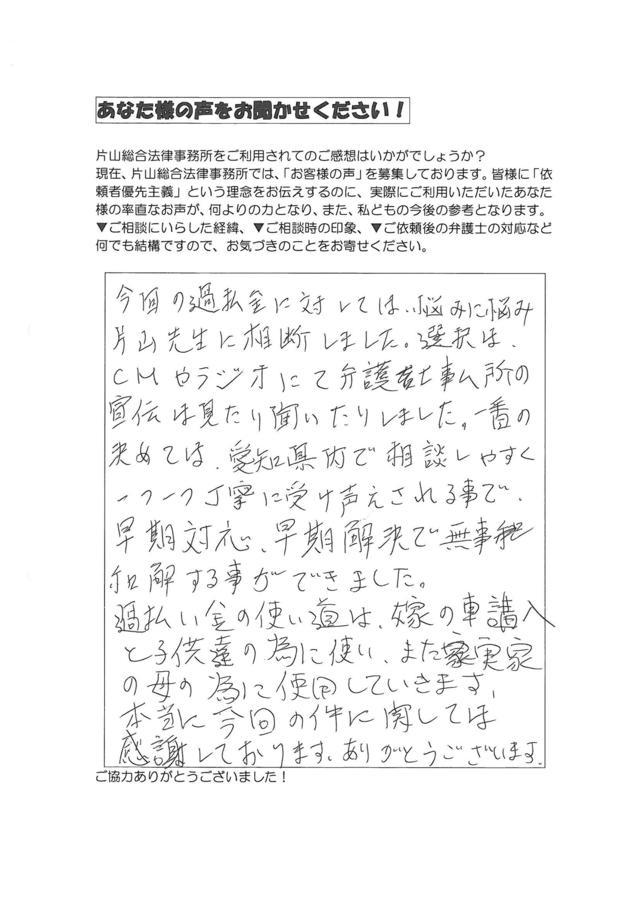 あなた様の声をお聞かせください！
片山総合法律事務所をご利用されてのご感想はいかがでしょうか？
現在、片山総合法律事務所では、「お客様の声」を募集しております。皆様に「依
頼者優先主義」という理念をお伝えするのに、実際にご利用いただいたあなた
様の率直なお声が、何よりの力となり、また、私どもの今後の参考となります。
▼ご相談にいらした経緯、▼ご相談時の印象、▼ご依頼後の弁護士の対応など
何でも結構ですので、お気づきのことをお寄せください。
今回の過払金に対しては、悩みに悩み
片山先生に相断しました。選択は、
CMやラジオにて弁護士事ム所の
宣伝は見たり聞いたりしました。一番の
決めては、愛知県内で相談しやすく
一つ一つ丁寧に受け声えされる事で、
早期対応、早期解決で無事
和解する事ができました。
過払い金の使い道は、嫁の車講入
と子供達の為に使い、また実家
の母の為に使用していきます。
本当に今回の件に関しては
感謝しております。ありがとうございます。
ご協力ありがとうございました！